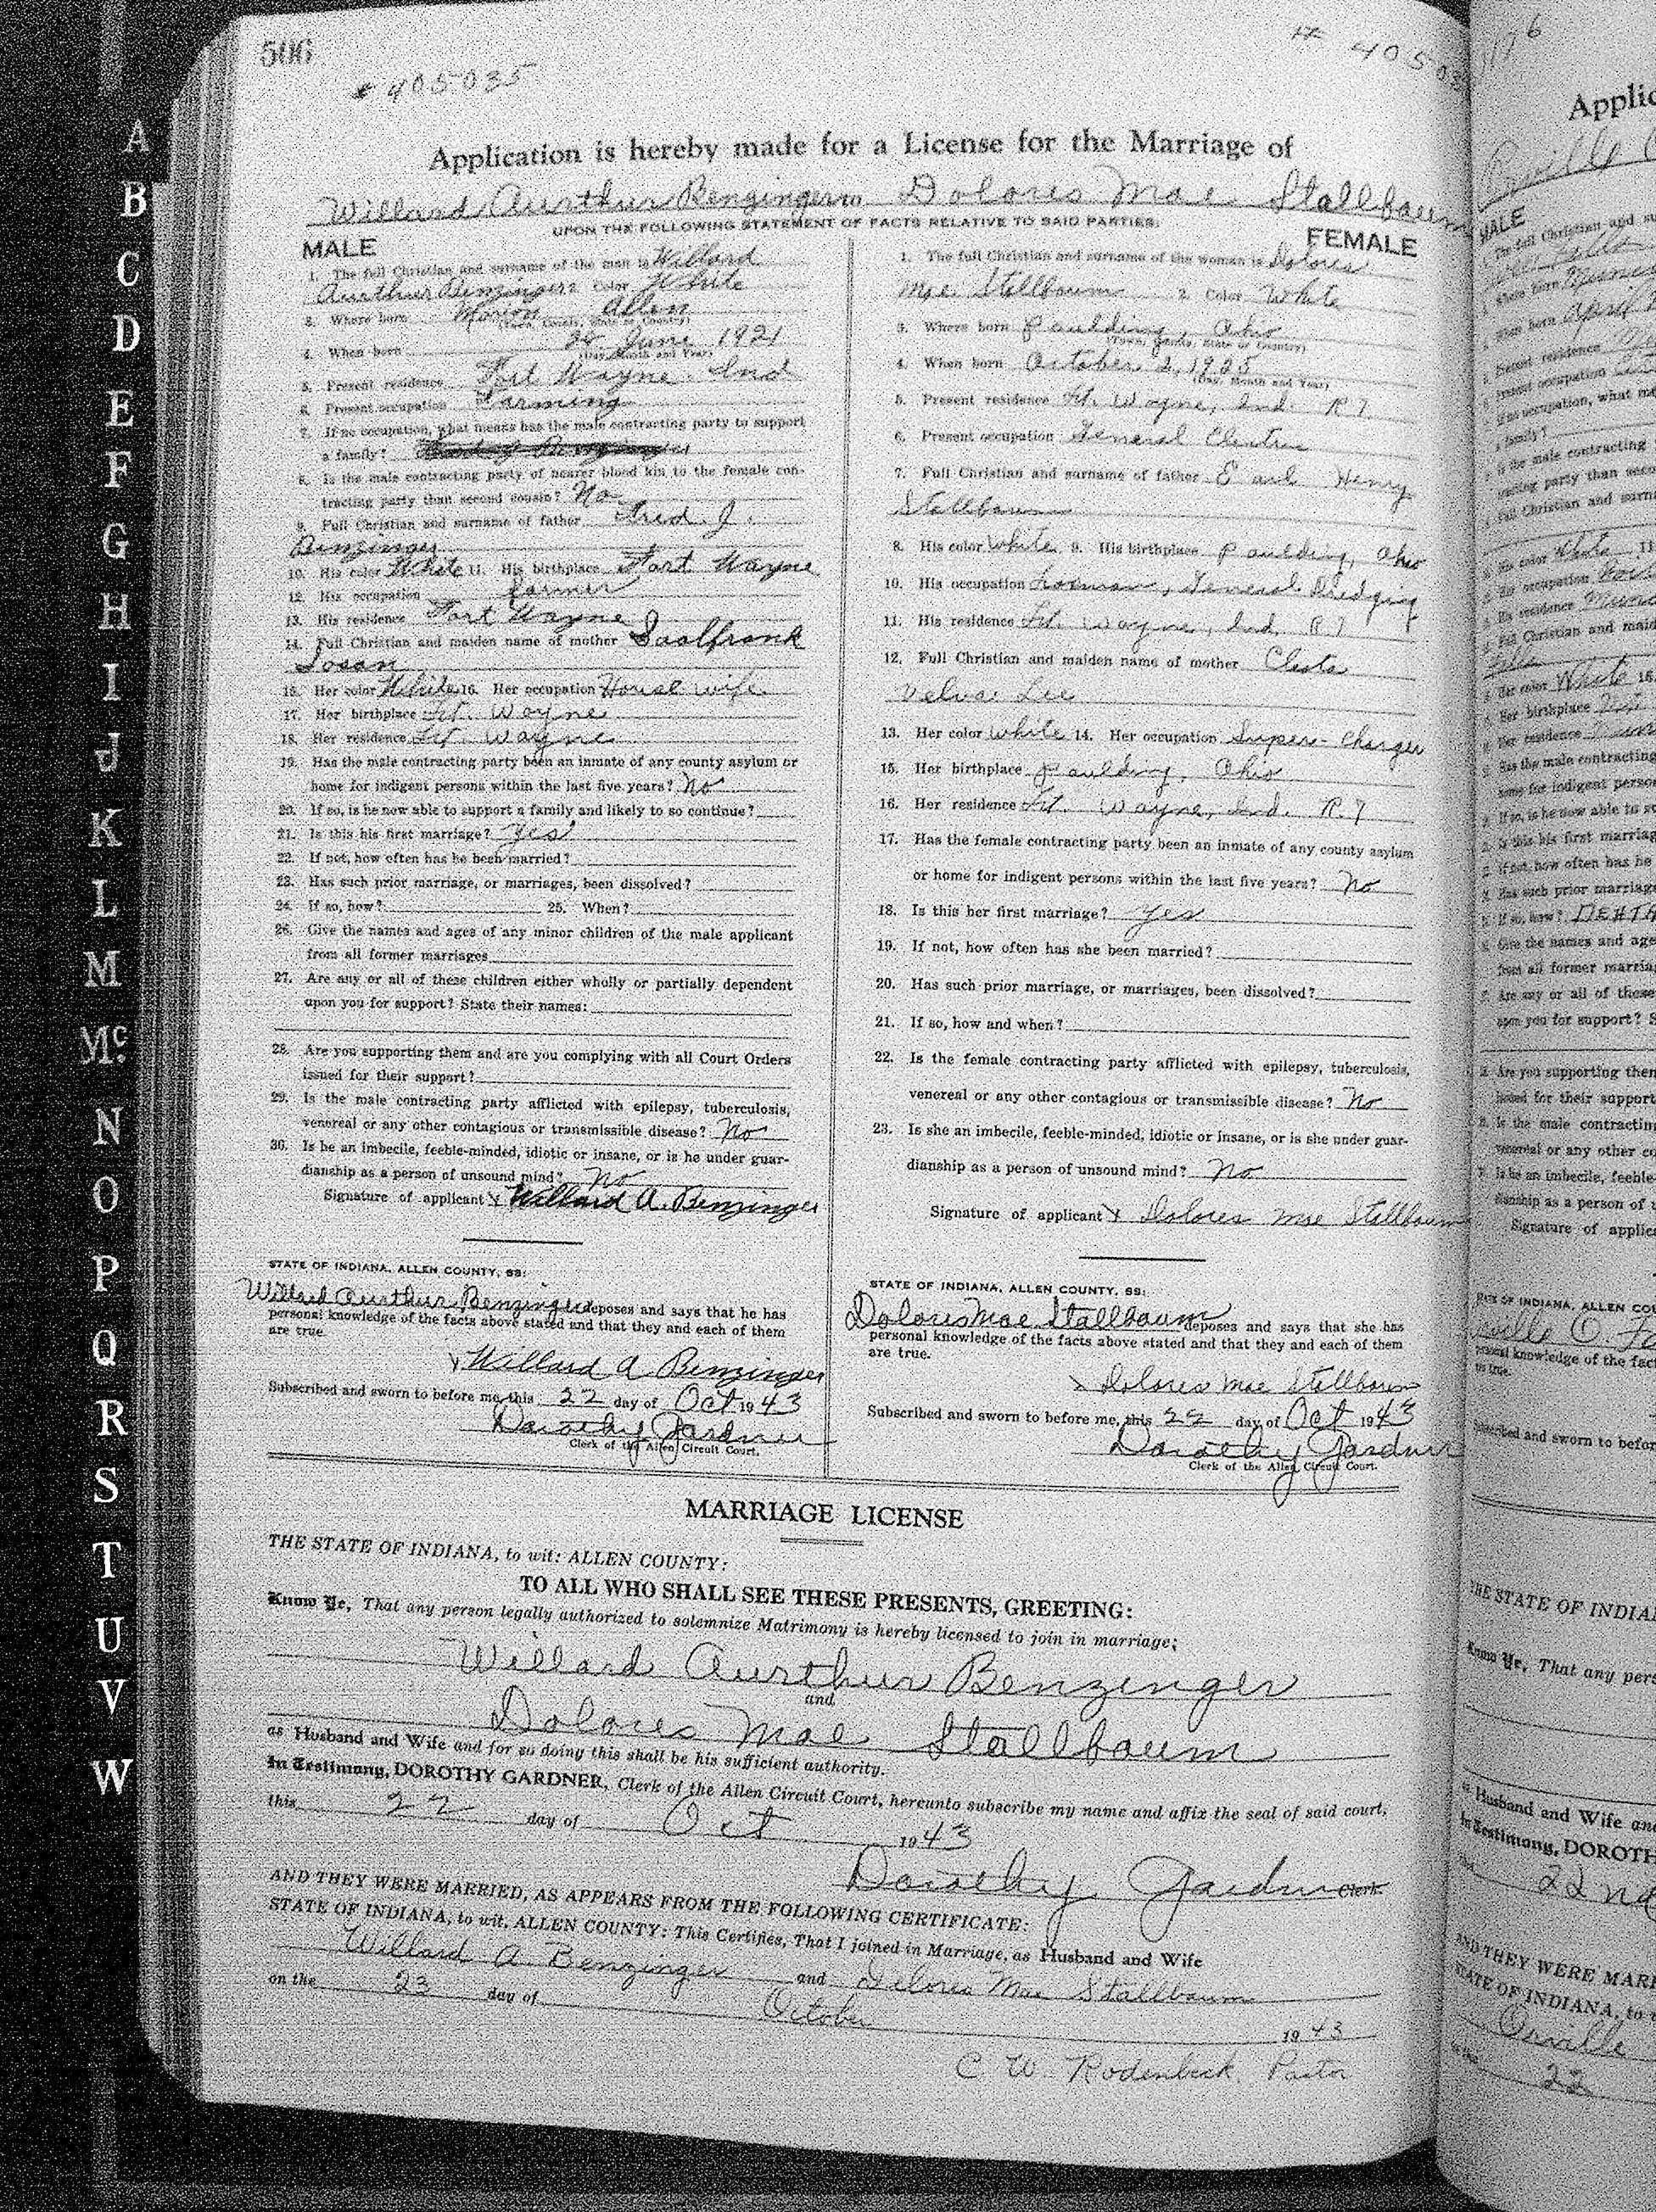 506
# 405035
# 40503
Application is hereby made for a License for the Marriage of
Willard Aurthur Benzinger to Dolores Mae Stallbaum
UPON THE FOLLOWING STATEMENT OF FACTS RELATIVE TO SAID PARTIES:
MALE
1. The full Christian and surname of the man is Willard
Aurthur Benzinger 2. Color White
3. Where born Marion Allen
(Town, County, State or Country)
4. When born June 1921
(Day, Month and Year)
5. Present residence Fort Wayne. Ind
6. Present occupation Farming
7. If no occupation, what means has the male contracting party to support
a family?
8. Is the male contracting party of nearer blood kin to the female con-
tracting party than second cousin? No
9. Full Christian and surname of father Fred. J.
Benzinger
10. His color White 11. His birthplace Fort Wayne
12. His occupation farmer
13. His residence Fort Wayne
14. Full Christian and maiden name of mother Saalfrank
Susan
15. Her color White 16. Her occupation House wife
17. Her birthplace Ft. Wayne
18. Her residence Ft. Wayne
19. Has the male contracting party been an inmate of any county asylum or
home for indigent persons within the last five years? No
20. If so, is he now able to support a family and likely to so continue?
21. Is this his first marriage? Yes
22. If not, how often has he been married?
23. Has such prior marriage, or marriages, been dissolved?
24. If so, how? 25. When?
26. Give the names and ages of any minor children of the male applicant
from all former marriages
27. Are any or all of these children either wholly or partially dependent
upon you for support? State their names:
28. Are you supporting them and are you complying with all Court Orders
issued for their support?
29. Is the male contracting party afflicted with epilepsy, tuberculosis,
venereal or any other contagious or transmissible disease? No
30. Is he an imbecile, feeble-minded, idiotic or insane, or is he under guar-
dianship as a person of unsound mind? No
Signature of applicant X Willard A. Benzinger
STATE OF INDIANA, ALLEN COUNTY, SS:
Willard Aurthur Benzinger deposes and says that he has
personal knowledge of the facts above stated and that they and each of them
are true.
X Willard A Benzinger
Subscribed and sworn to before me, this 22 day of Oct 1943
Dorothy Gardner
Clerk of the Allen Circuit Court.
FEMALE
1. The full Christian and surname of the woman is Dolores
Mae Stallbaum 2. Color White
3. Where born Paulding, Ohio
(Town, County, State or Country)
4. When born October 2, 1925
(Day, Month and Year)
5. Present residence Ft. Wayne, Ind. R 7
6. Present occupation General Electric
7. Full Christian and surname of father Earl Henry
Stallbaum
8. His color White 9. His birthplace Paulding, Ohio
10. His occupation General Dredging
11. His residence Ft. Wayne, Ind. R 7
12. Full Christian and maiden name of mother Cleta
Velva Lee
13. Her color White 14. Her occupation Super-Charger
15. Her birthplace Paulding, Ohio
16. Her residence Ft. Wayne, Ind. R. 7
17. Has the female contracting party been an inmate of any county asylum
or home for indigent persons within the last five years? No
18. Is this her first marriage? Yes
19. If not, how often has she been married?
20. Has such prior marriage, or marriages, been dissolved?
21. If so, how and when?
22. Is the female contracting party afflicted with epilepsy, tuberculosis,
venereal or any other contagious or transmissible disease? No
23. Is she an imbecile, feeble-minded, idiotic or insane, or is she under guar-
dianship as a person of unsound mind? No
Signature of applicant X Dolores Mae Stallbaum
STATE OF INDIANA, ALLEN COUNTY, SS:
Dolores Mae Stallbaum deposes and says that she has
personal knowledge of the facts above stated and that they and each of them
are true.
X Dolores Mae Stallbaum
Subscribed and sworn to before me, this 22 day of Oct 1943
Dorothy Gardner
Clerk of the Allen Circuit Court.
MARRIAGE LICENSE
THE STATE OF INDIANA, to wit: ALLEN COUNTY:
TO ALL WHO SHALL SEE THESE PRESENTS, GREETING:
Know Ye, That any person legally authorized to solemnize Matrimony is hereby licensed to join in marriage;
Willard Aurthur Benzinger
and
Dolores Mae Stallbaum
as Husband and Wife and for so doing this shall be his sufficient authority.
In Testimony, DOROTHY GARDNER, Clerk of the Allen Circuit Court, hereunto subscribe my name and affix the seal of said court,
this 22 day of Oct 1943
Dorothy Gardner Clerk.
AND THEY WERE MARRIED, AS APPEARS FROM THE FOLLOWING CERTIFICATE:
STATE OF INDIANA, to wit, ALLEN COUNTY: This Certifies, That I joined in Marriage, as Husband and Wife
Willard A Benzinger and Dolores Mae Stallbaum
on the 23 day of October 1943
C W Rodenbeck. Pastor
A
B
C
D
E
F
G
H
I
J
K
L
M
Mc.
N
O
P
Q
R
S
T
U
V
W